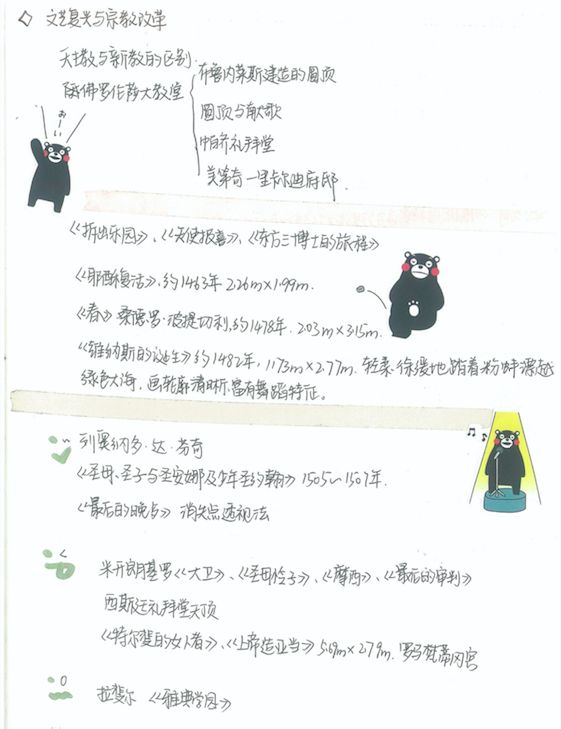 文艺复兴与宗教改革
天主教与新教的区别.
佛罗伦萨大教堂
布鲁内莱斯建造的圆顶
圆顶与献歌
帕齐礼拜堂
美第奇—里卡尔迪府邸.
おーい
《拆出乐园》、《天使报喜》、《东方三博士的旅程》
《耶稣复活》,约1463年 2.26m×1.99m.
《春》桑德罗·波提切利,约1478年. 2.03m×3.15m.
《维纳斯的诞生》约1482年, 1.73m×2.77m. 轻柔、徐缓地踏着粉蚌漂越
绿色大海,画轮廓清晰富有舞蹈特征。
列奥纳多·达·芬奇
《圣母、圣子与圣安娜及少年圣约翰》1505~1507年.
《最后的晚点》 消失点透视法
米开朗基罗《大卫》、《圣母怜子》、《摩西》、《最后的审判》
西斯廷礼拜堂天顶
《特尔斐的女人者》、《上帝造亚当》5.69m×2.79m. 罗马梵蒂冈宫
拉斐尔 《雅典学园》